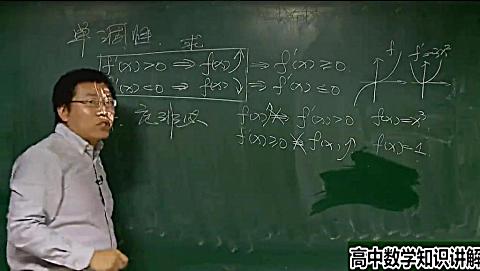 单调性. 求
f'(x)>0 ⇒ f(x)↑ ⇒ f'(x)≥0.
f'(x)<0 ⇒ f(x)↓ ⇒ f'(x)≤0
f f'=3x²
f(x)↑ ⇏ f'(x)>0 f(x)=x³
f'(x)≥0 ⇏ f(x)↑ f(x)=1.
高中数学知识讲解